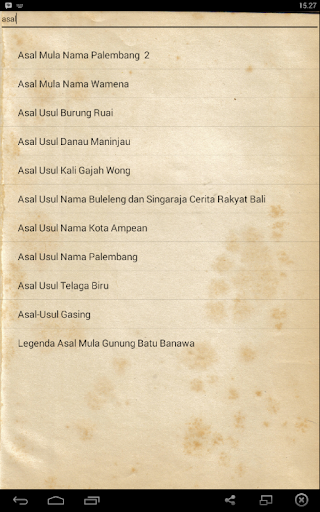 15.27
asal
Asal Mula Nama Palembang  2
Asal Mula Nama Wamena
Asal Usul Burung Ruai
Asal Usul Danau Maninjau
Asal Usul Kali Gajah Wong
Asal Usul Nama Buleleng dan Singaraja Cerita Rakyat Bali
Asal Usul Nama Kota Ampean
Asal Usul Nama Palembang
Asal Usul Telaga Biru
Asal-Usul Gasing
Legenda Asal Mula Gunung Batu Banawa